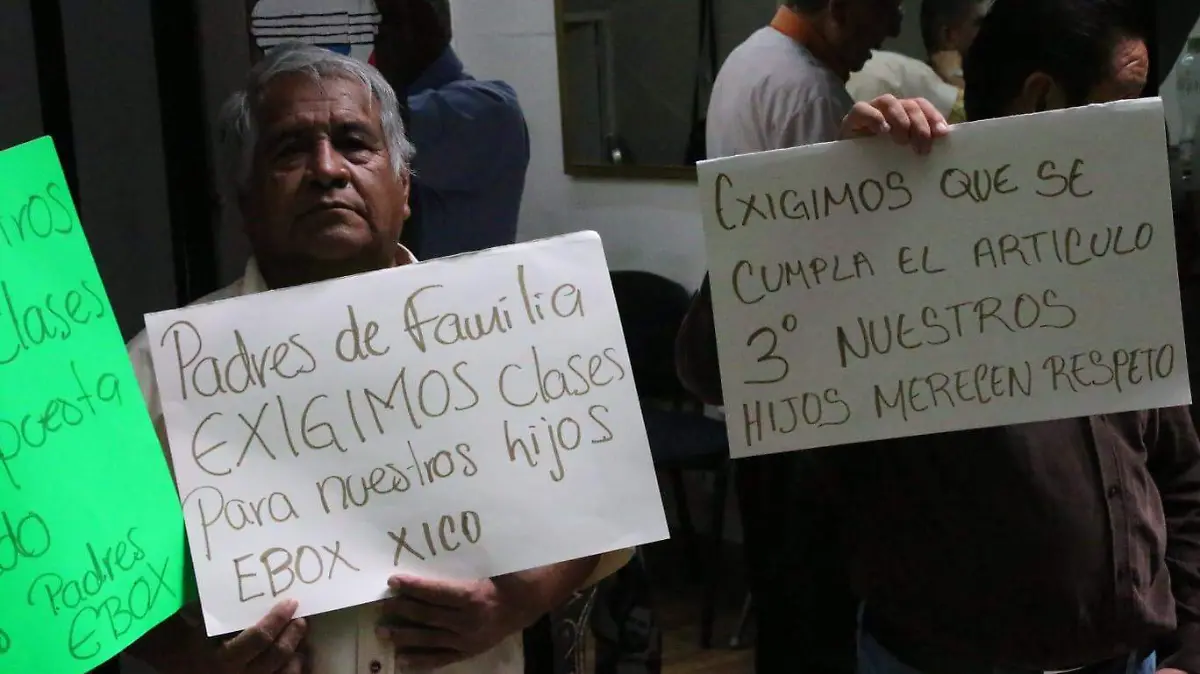 Clases
Padres
EBOX
Padres de Familia
EXIGIMOS Clases
para nuestros hijos
EBOX XICO
EXIGIMOS QUE SE
CUMPLA EL ARTICULO
3º NUESTROS
HIJOS MERECEN RESPETO